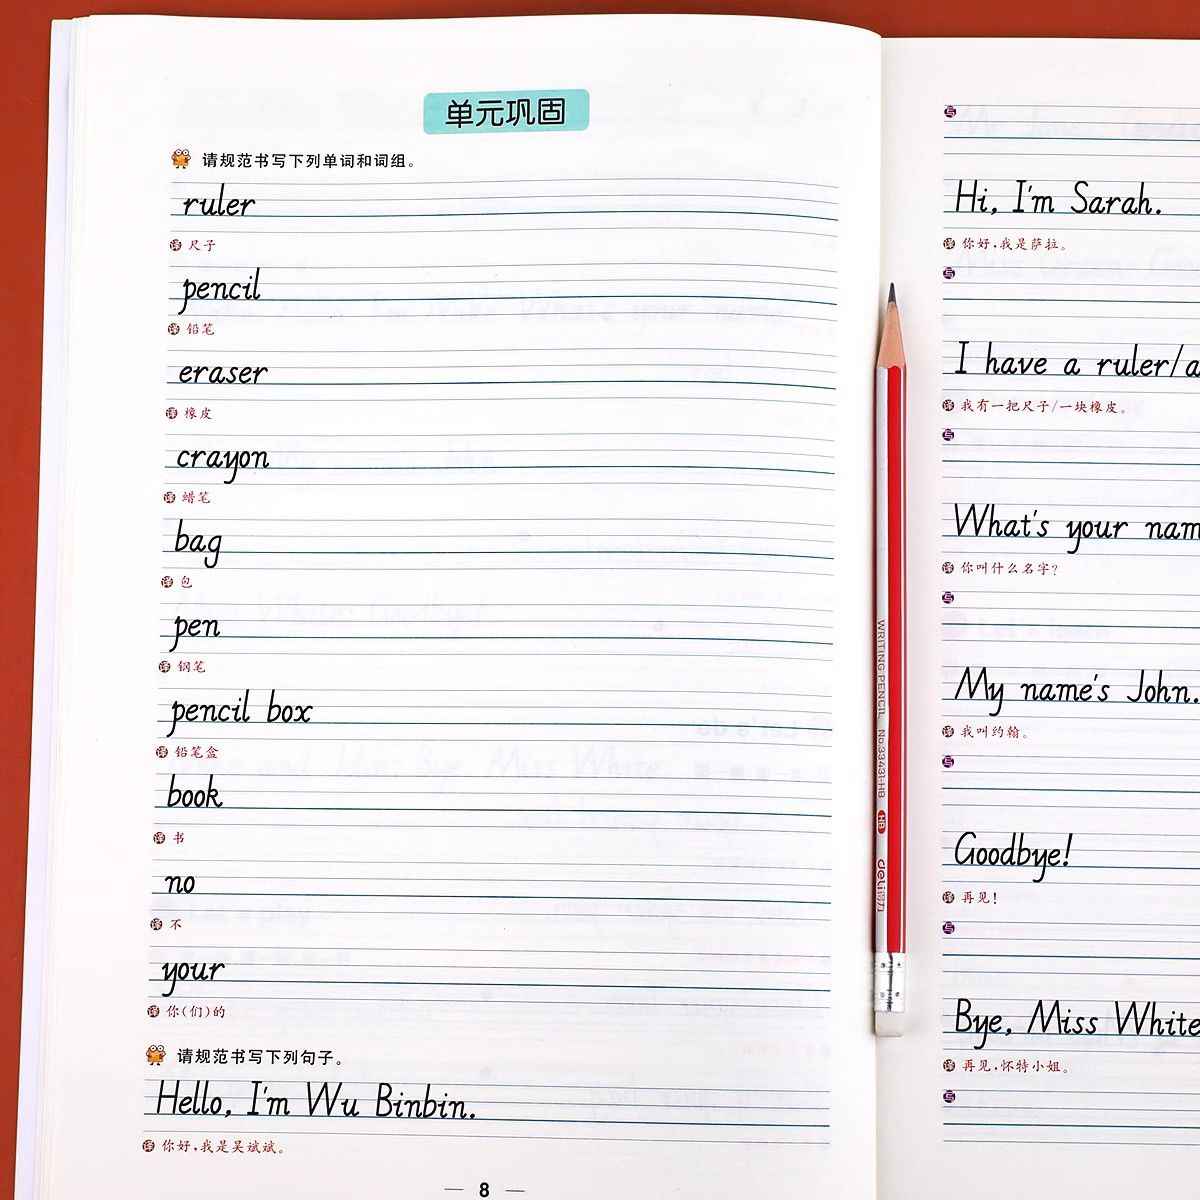 单元巩固
请规范书写下列单词和词组。
ruler
译 尺子
pencil
译 铅笔
eraser
译 橡皮
crayon
译 蜡笔
bag
译 包
pen
译 钢笔
pencil box
译 铅笔盒
book
译 书
no
译 不
your
译 你(们)的
请规范书写下列句子。
Hello, I'm Wu Binbin.
译 你好,我是吴斌斌。
— 8 —
写
Hi, I'm Sarah.
译 你好,我是萨拉。
写
I have a ruler/a
译 我有一把尺子/一块橡皮。
写
What's your nam
译 你叫什么名字?
写
My name's John.
译 我叫约翰。
写
Goodbye!
译 再见!
写
Bye, Miss White
译 再见,怀特小姐。
写
WRITING PENCIL No.33431-HB HB deli